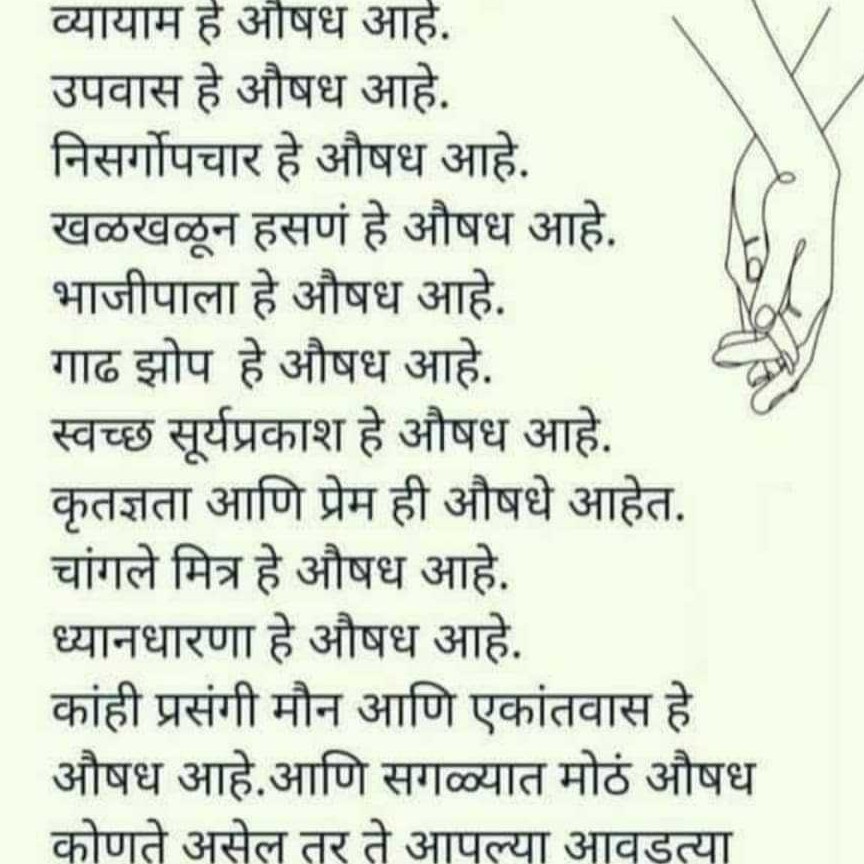 व्यायाम हे औषध आहे.
उपवास हे औषध आहे.
निसर्गोपचार हे औषध आहे.
खळखळून हसणं हे औषध आहे.
भाजीपाला हे औषध आहे.
गाढ झोप  हे औषध आहे.
स्वच्छ सूर्यप्रकाश हे औषध आहे.
कृतज्ञता आणि प्रेम ही औषधे आहेत.
चांगले मित्र हे औषध आहे.
ध्यानधारणा हे औषध आहे.
कांही प्रसंगी मौन आणि एकांतवास हे
औषध आहे.आणि सगळ्यात मोठं औषध
कोणते असेल तर ते आपल्या आवडत्या